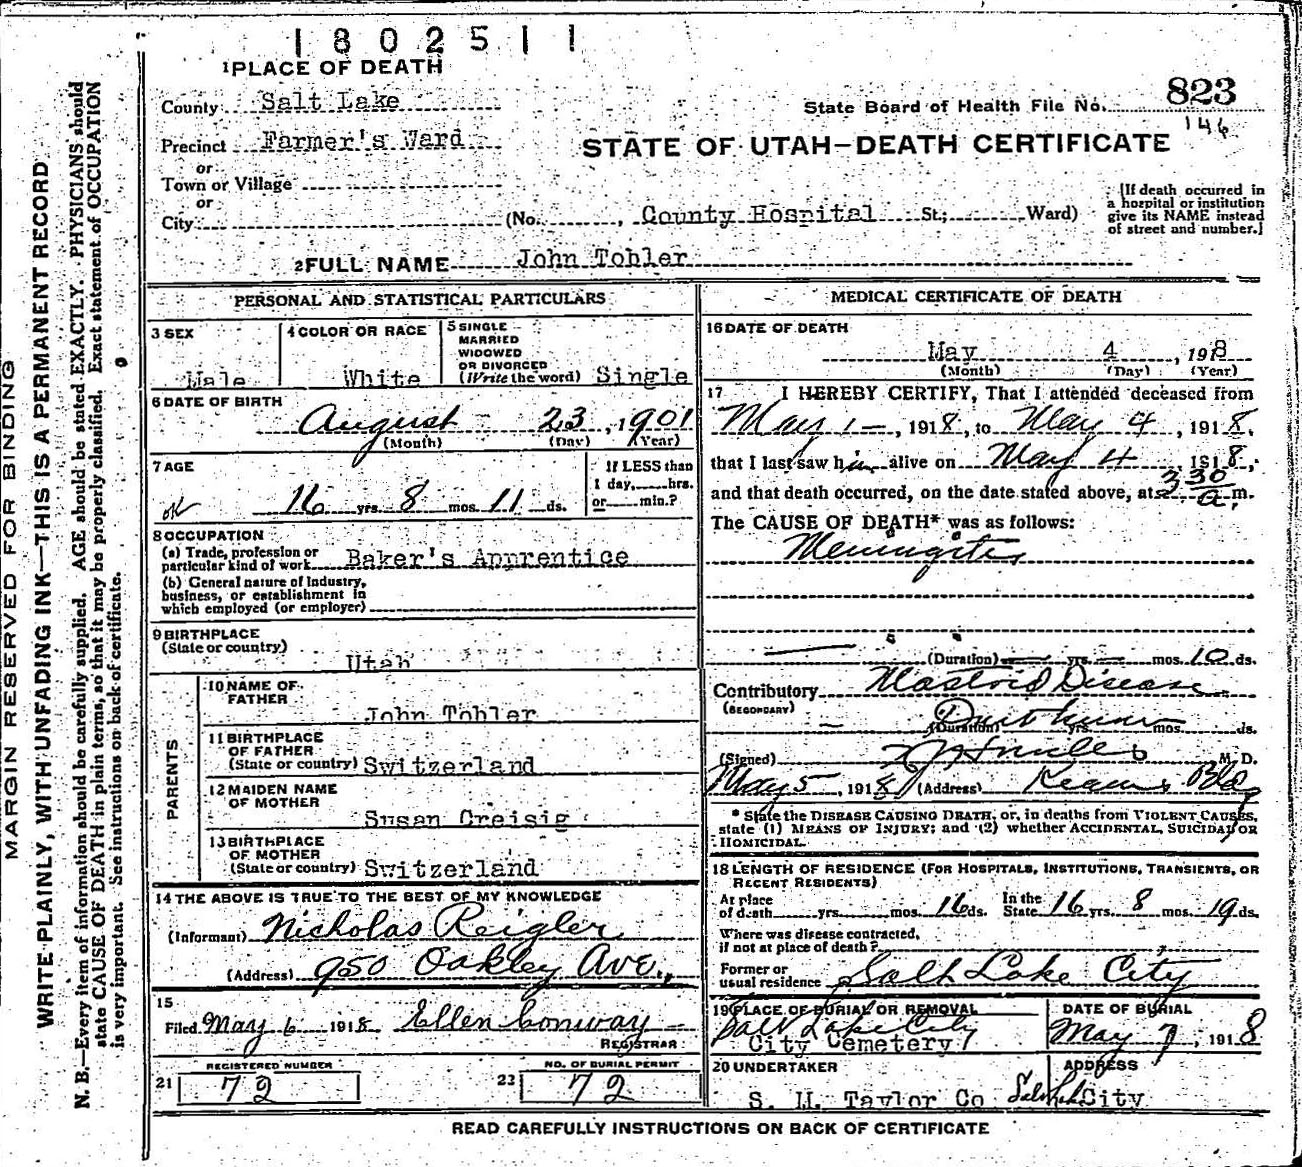 1802511
1 PLACE OF DEATH
County Salt Lake
State Board of Health File No. 823
146
Precinct Farmer's Ward
STATE OF UTAH—DEATH CERTIFICATE
or
Town or Village
or
City (No. , County Hospital St.; Ward)
[If death occurred in
a hospital or institution
give its NAME instead
of street and number.]
2 FULL NAME John Tobler
PERSONAL AND STATISTICAL PARTICULARS
3 SEX
Male
4 COLOR OR RACE
White
5 SINGLE
MARRIED
WIDOWED
OR DIVORCED
(Write the word) Single
6 DATE OF BIRTH
August 23, 1901
(Month) (Day) (Year)
7 AGE
ok 16 yrs. 8 mos. 11 ds.
If LESS than
1 day, hrs.
or min.?
8 OCCUPATION
(a) Trade, profession or
particular kind of work Baker's Apprentice
(b) General nature of industry,
business, or establishment in
which employed (or employer)
9 BIRTHPLACE
(State or country)
Utah
PARENTS
10 NAME OF
FATHER
John Tobler
11 BIRTHPLACE
OF FATHER
(State or country) Switzerland
12 MAIDEN NAME
OF MOTHER
Susan Creisig
13 BIRTHPLACE
OF MOTHER
(State or country) Switzerland
14 THE ABOVE IS TRUE TO THE BEST OF MY KNOWLEDGE
(Informant) Nicholas Reigler
(Address) 950 Oakley Ave.,
15
Filed May 6 1918 Ellen Conway
REGISTRAR
REGISTERED NUMBER
21 72
NO. OF BURIAL PERMIT
22 72
MEDICAL CERTIFICATE OF DEATH
16 DATE OF DEATH
May 4, 1918
(Month) (Day) (Year)
17 I HEREBY CERTIFY, That I attended deceased from
May 1—, 1918, to May 4, 1918,
that I last saw him alive on May 4 1918,
and that death occurred, on the date stated above, at 3 30 a. m.
The CAUSE OF DEATH* was as follows:
Meningitis
(Duration) yrs. mos. 10 ds.
Contributory Mastoid Disease
(SECONDARY)
(Duration) yrs. mos. ds.
(Signed) M. D.
May 5, 1918 (Address) Kearns Bldg
* State the DISEASE CAUSING DEATH, or, in deaths from VIOLENT CAUSES,
state (1) MEANS OF INJURY; and (2) whether ACCIDENTAL, SUICIDAL OR
HOMICIDAL.
18 LENGTH OF RESIDENCE (FOR HOSPITALS, INSTITUTIONS, TRANSIENTS, OR
RECENT RESIDENTS)
At place
of death yrs. mos. 16 ds.
In the
State 16 yrs. 8 mos. 19 ds.
Where was disease contracted,
if not at place of death?
Former or
usual residence Salt Lake City
19 PLACE OF BURIAL OR REMOVAL
Salt Lake City
City Cemetery
DATE OF BURIAL
May 7, 1918
20 UNDERTAKER
S. M. Taylor Co
ADDRESS
Salt Lake City
READ CAREFULLY INSTRUCTIONS ON BACK OF CERTIFICATE
MARGIN RESERVED FOR BINDING
WRITE PLAINLY, WITH UNFADING INK—THIS IS A PERMANENT RECORD
N. B.—Every item of information should be carefully supplied. AGE should be stated EXACTLY. PHYSICIANS should
state CAUSE OF DEATH in plain terms, so that it may be properly classified. Exact statement of OCCUPATION
is very important. See instructions on back of certificate.